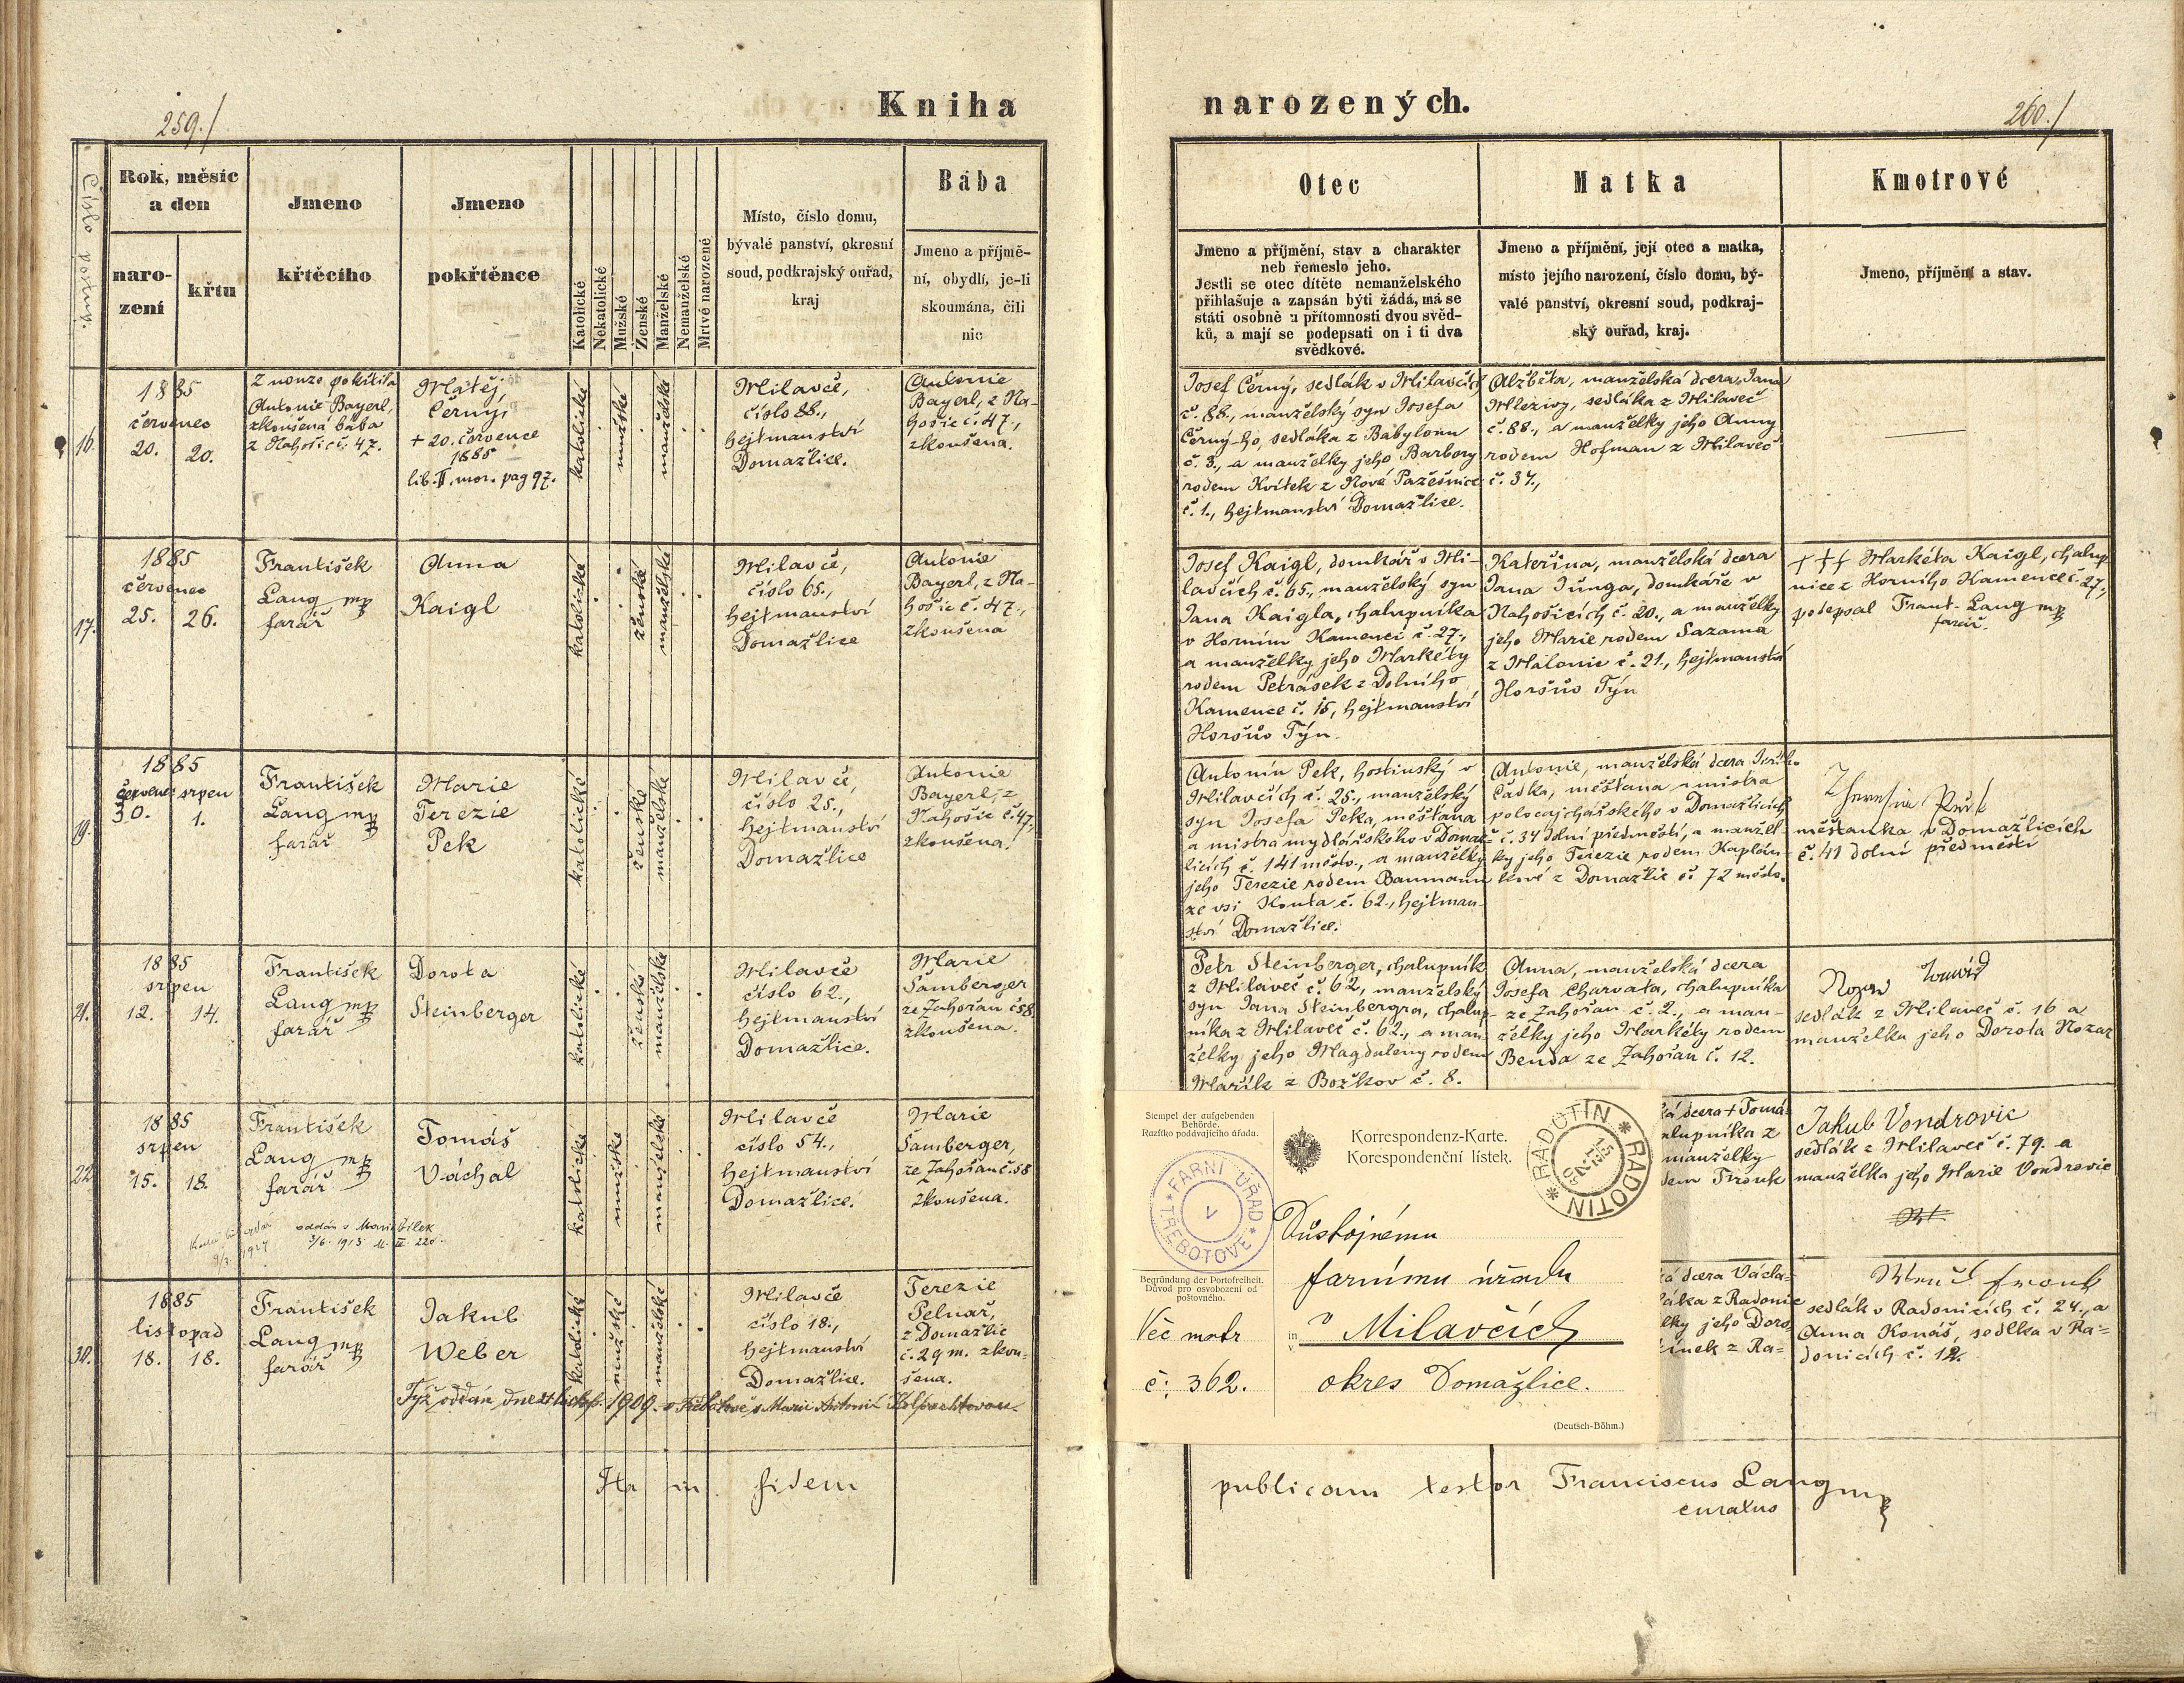 259./
Kniha
Číslo postup.
Rok, měsíc
a den
naro-
zení
křtu
Jmeno
křtěcího
Jmeno
pokřtěnce
Katolické
Nekatolické
Mužské
Ženské
Manželské
Nemanželské
Mrtvě narozené
Místo, číslo domu,
bývalé panství, okresní
soud, podkrajský ouřad,
kraj
Bába
Jmeno a příjmě-
ní, obydlí, je-li
skoumána, čili
nic
16.
1885
červenec
20. 20.
Z nouze pokřtila
Antonie Bayerl,
zkoušená bába
z Nahošic č. 47.
Matěj
Černý,
+ 20. července
1885
lib. II. mor. pag 97.
katolické
mužské
manželské
Milavče,
číslo 88.,
hejtmanství
Domažlice.
Antonie
Bayerl, z Na-
hošic č. 47.,
zkoušena.
17.
1885
červenec
25. 26.
František
Lang mp
farář
Anna
Kaigl
katolické
ženské
manželské
Milavče,
číslo 65.,
hejtmanství
Domažlice
Antonie
Bayerl, z Na-
hošic č. 47.,
zkoušena
19.
1885
červenec srpen
30. 1.
František
Lang mp
farář
Marie
Terezie
Pek
katolické
ženské
manželské
Milavče,
číslo 25.,
hejtmanství
Domažlice
Antonie
Bayerl, z
Nahošic č. 47,
zkoušena.
21.
1885
srpen
12. 14.
František
Lang mp
farář
Dorota
Steinberger
katolické
ženské
manželské
Milavče
číslo 62.,
hejtmanství
Domažlice.
Marie
Šamberger
ze Zahořan č 58
zkoušena.
22.
1885
srpen
15. 18.
František
Lang mp
farář
Tomáš
Váchal
oddán s Marií Bílek
3/6. 1913
katolické
mužské
manželské
Milavče
číslo 54.,
hejtmanství
Domažlice.
Marie
Šamberger,
ze Zahořan č. 58
zkoušena.
30.
1885
listopad
18. 18.
František
Lang mp
farář
Jakub
Weber
katolické
mužské
manželské
Milavče
číslo 18.,
hejtmanství
Domažlice.
Terezie
Pelnař,
z Domažlic
č. 29 m. zkou-
šena.
Týž oddán dne 1909. v Třebotově s Marií Antonií
Ita in fidem
narozených.
260./
Otec
Jmeno a příjmění, stav a charakter
neb řemeslo jeho.
Jestli se otec dítěte nemanželského
přihlašuje a zapsán býti žádá, má se
státi osobně u přítomnosti dvou svěd-
ků, a mají se podepsati on i ti dva
svědkové.
Matka
Jmeno a příjmění, její otec a matka,
místo jejího narození, číslo domu, bý-
valé panství, okresní soud, podkraj-
ský ouřad, kraj.
Kmotrové
Jmeno, příjmění a stav.
Josef Černý, sedlák v Milavčích
č. 88., manželský syn Josefa
Černý-ho, sedláka z Babylonu
č. 3., a manželky jeho Barbory
rodem Kvítek z Nové Pazešnice
č. 1., hejtmanství Domažlice.
Alžběta, manželská dcera Jana
Mlezivy, sedláka z Milaveč
č. 88., a manželky jeho Anny
rodem Hofman z Milaveč
č. 37.,
Josef Kaigl, domkář v Mi-
lavčích č. 65., manželský syn
Jana Kaigla, chalupníka
v Horním Kamenci č. 27.,
a manželky jeho Markéty
rodem Petrásek z Dolního
Kamence č. 15, hejtmanství
Horšův Týn.
Kateřina, manželská dcera
Jana Junga, domkáře v
Nahošicích č. 20., a manželky
jeho Marie rodem Sazama
z Malonic č. 21., hejtmanství
Horšův Týn
+++ Markéta Kaigl, chalup
nice z Horního Kamence č. 27.,
podepsal Frant. Lang mp
farář.
Antonín Pek, hostinský v
Milavčích č. 25., manželský
syn Josefa Peka, měšťana
a mistra mydlářského v Domaž-
licích č. 141 město., a manželky
jeho Terezie rodem Baumann
ze vsi Kouta č. 62., hejtman-
ství Domažlice.
Antonie, manželská dcera Jiřího
Čadka, měšťana a mistra
polocajchářského v Domažlicích
č. 34 dolní předměstí, a manžel-
ky jeho Terezie rodem Kaplán-
kové z Domažlic č. 72 město.
Theresia
měšťanka v Domažlicích
č. 41 dolní předměstí
Petr Steinberger, chalupník
z Milaveč č. 62, manželský
syn Jana Steinbergra, chalup-
níka z Milaveč č. 62., a man-
želky jeho Magdaleny rodem
Mařík z Božkov č. 8.
Anna, manželská dcera
Josefa Charvata, chalupníka
ze Zahořan č. 2., a man-
želky jeho Markéty rodem
Benda ze Zahořan č. 12.
Nozar Tomáš
sedlák z Milaveč č. 16 a
manželka jeho Dorota Nozar
ká dcera + Tomá-
alupníka z
manželky
dem Tronk
Jakub Vondrovic
sedlák z Milaveč č. 79. a
manželka jeho Marie Vondrovic
ká dcera Václa-
láka z Radonic
lky jeho Doro-
ínek z Ra-
sedlák v Radonicích č. 24., a
Anna Konáš, sedlka v Ra-
donicích č. 12.
Stempel der aufgebenden
Behörde.
Razítko poddvajícího úřadu.
FARNÍ ÚŘAD
V
TŘEBOTOVĚ
Korrespondenz-Karte.
Korespondenční lístek.
RADOTIN * RADOTIN
Důstojnému
farnímu úřadu
Begründung der Portofreiheit.
Důvod pro osvobození od
poštovného.
Věc matr
č: 362.
in
v
v Milavčích
okres Domažlice.
(Deutsch-Böhm.)
publicam testor Franciscus Lang mp
curatus